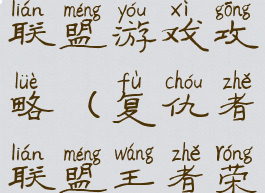 lián méng yóu xì gōng
联盟游戏攻
lüè fù chóu zhě
略（复仇者
lián méng wáng zhě róng
联盟王者荣